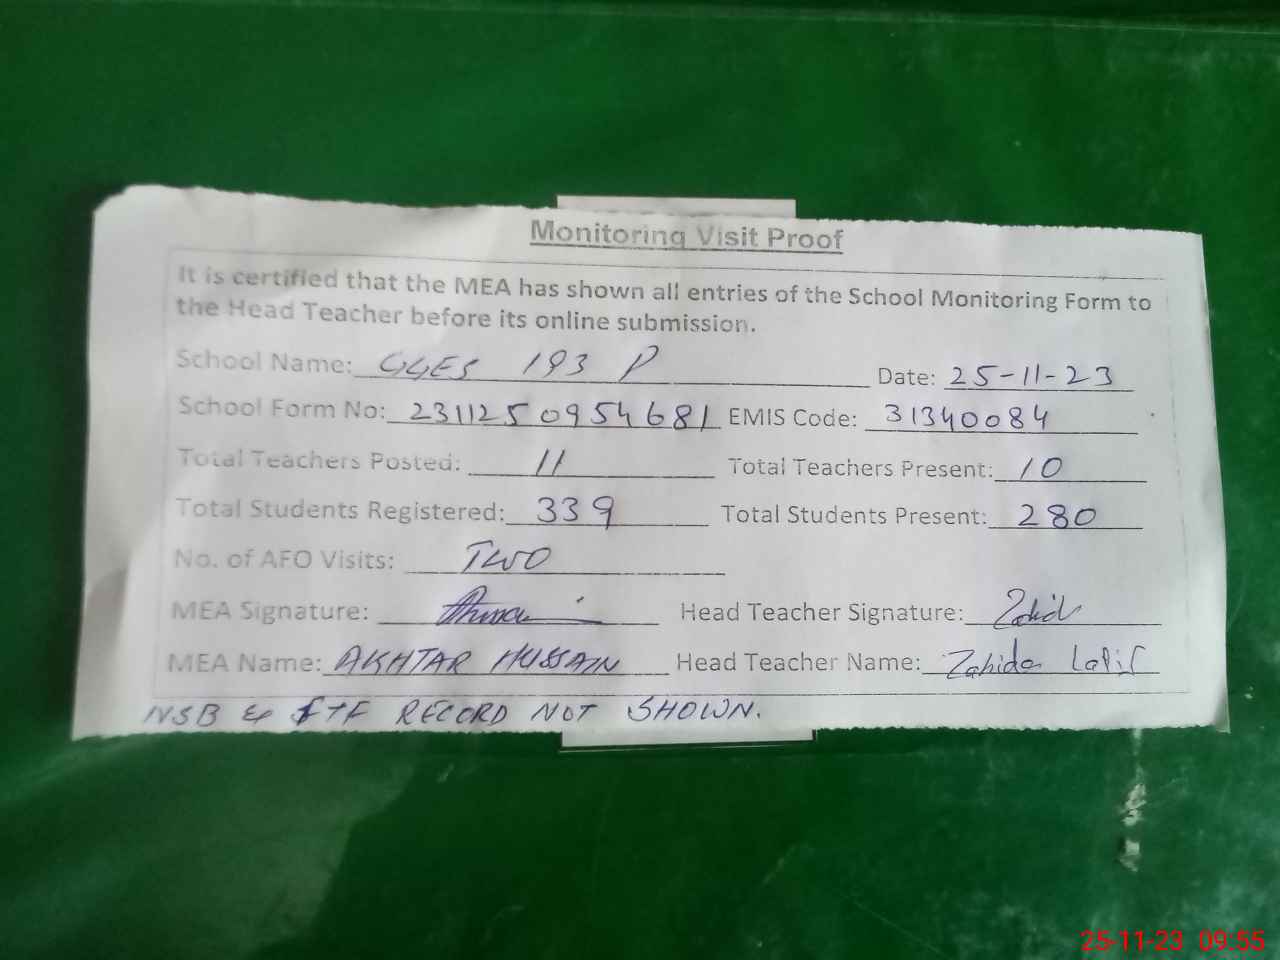 Monitoring Visit Proof
It is certified that the MEA has shown all entries of the School Monitoring Form to
the Head Teacher before its online submission.
School Name: GGES 193 P Date: 25-11-23
School Form No: 231125 0954681 EMIS Code: 31340084
Total Teachers Posted: 11 Total Teachers Present: 10
Total Students Registered: 339 Total Students Present: 280
No. of AFO Visits: TWO
MEA Signature: Head Teacher Signature: Zahid
MEA Name: AKHTAR HUSSAIN Head Teacher Name: Zahida Latif
NSB & FTF RECORD NOT SHOWN.
25-11-23 09:55